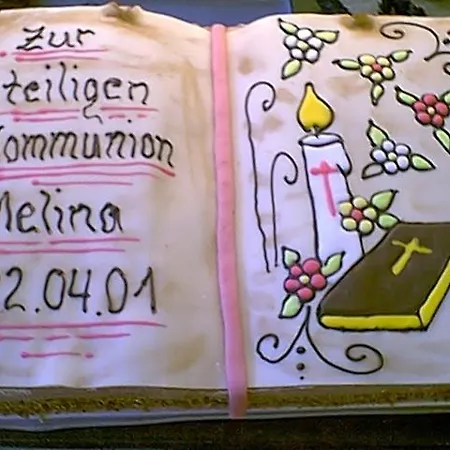 Zur
teiligen
Kommunion
Melina
2.04.01